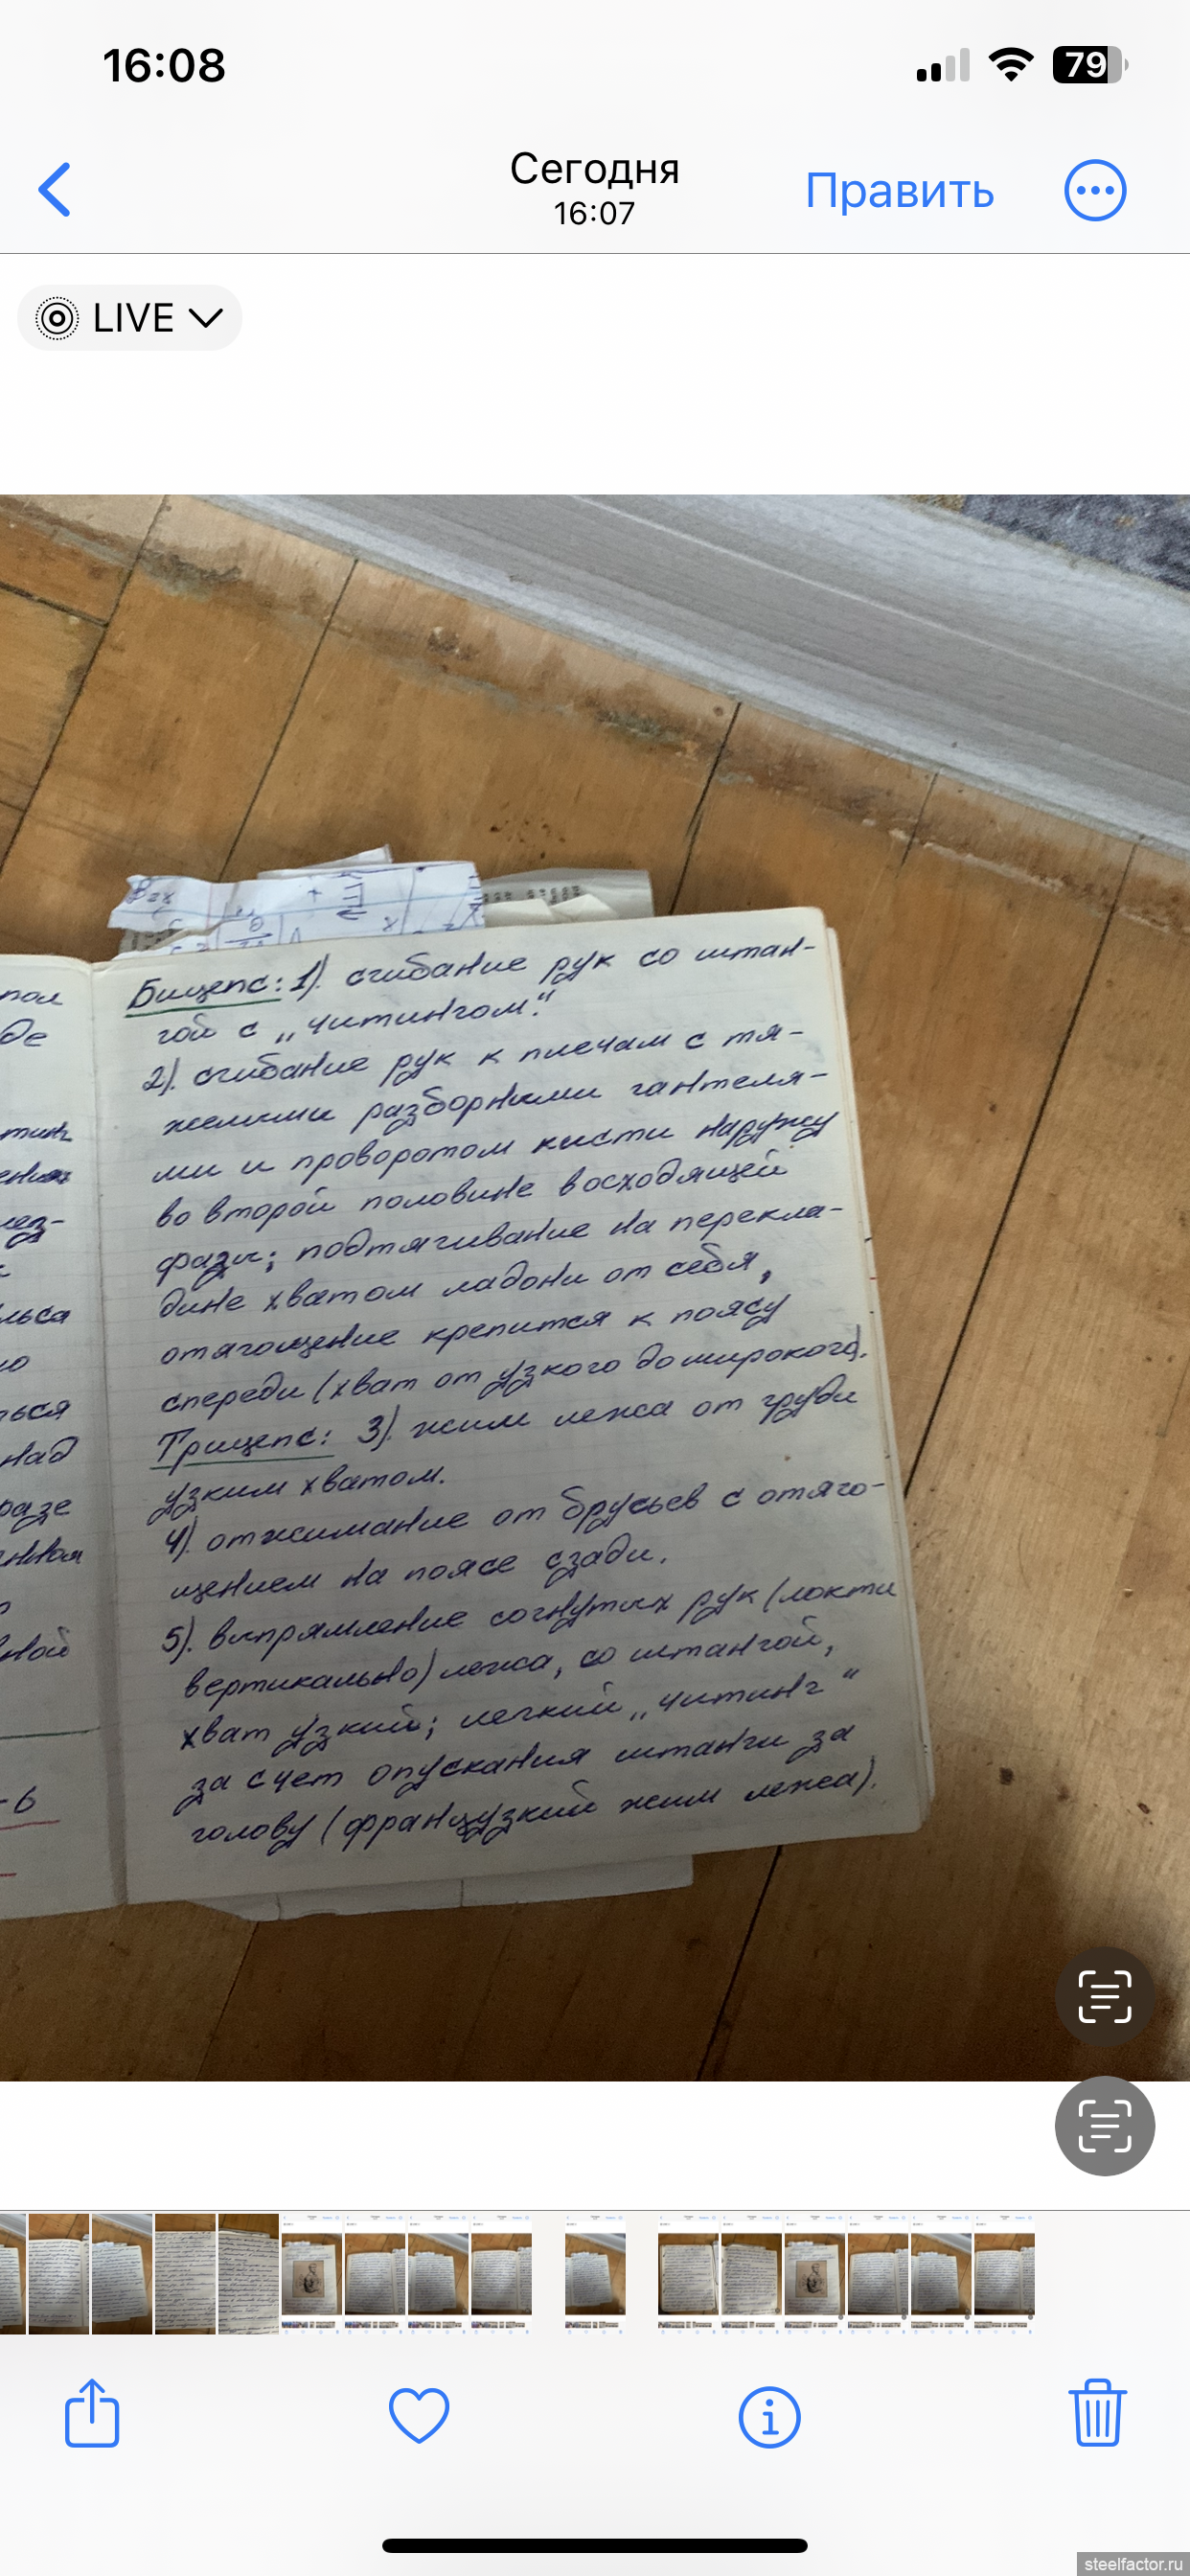 16:08
79
Сегодня
16:07
Править
LIVE
Бицепс: 1). сгибание рук со штан-
гой с „читингом".
2). сгибание рук к плечам с тя-
желыми разборными гантеля-
ми и проворотом кисти наружу
во второй половине восходящей
фазы; подтягивание на перекла-
дине хватом ладони от себя,
отягощение крепится к поясу
спереди (хват от узкого до широкого).
Трицепс: 3). жим лежа от груди
узким хватом.
4). отжимание от брусьев с отяго-
щением на поясе сзади.
5). выпрямление согнутых рук (локти
вертикально) лежа, со штангой,
хват узкий; легкий „читинг"
за счет опускания штанги за
голову (французкий жим лежа).
де
льса
ться
над
разе
вной
-6
steelfactor.ru